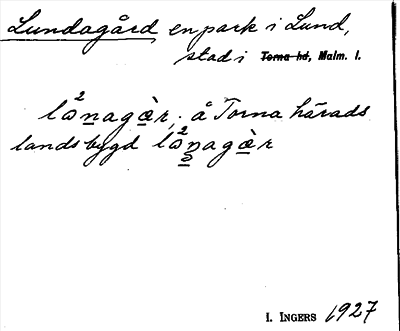 Lundagård, en park i Lund,
stad i Torna hd, Malm. l.
lω²nagæ̀r, å Torna härads
landsbygd lω²nagæ̀r
I. INGERS 1927